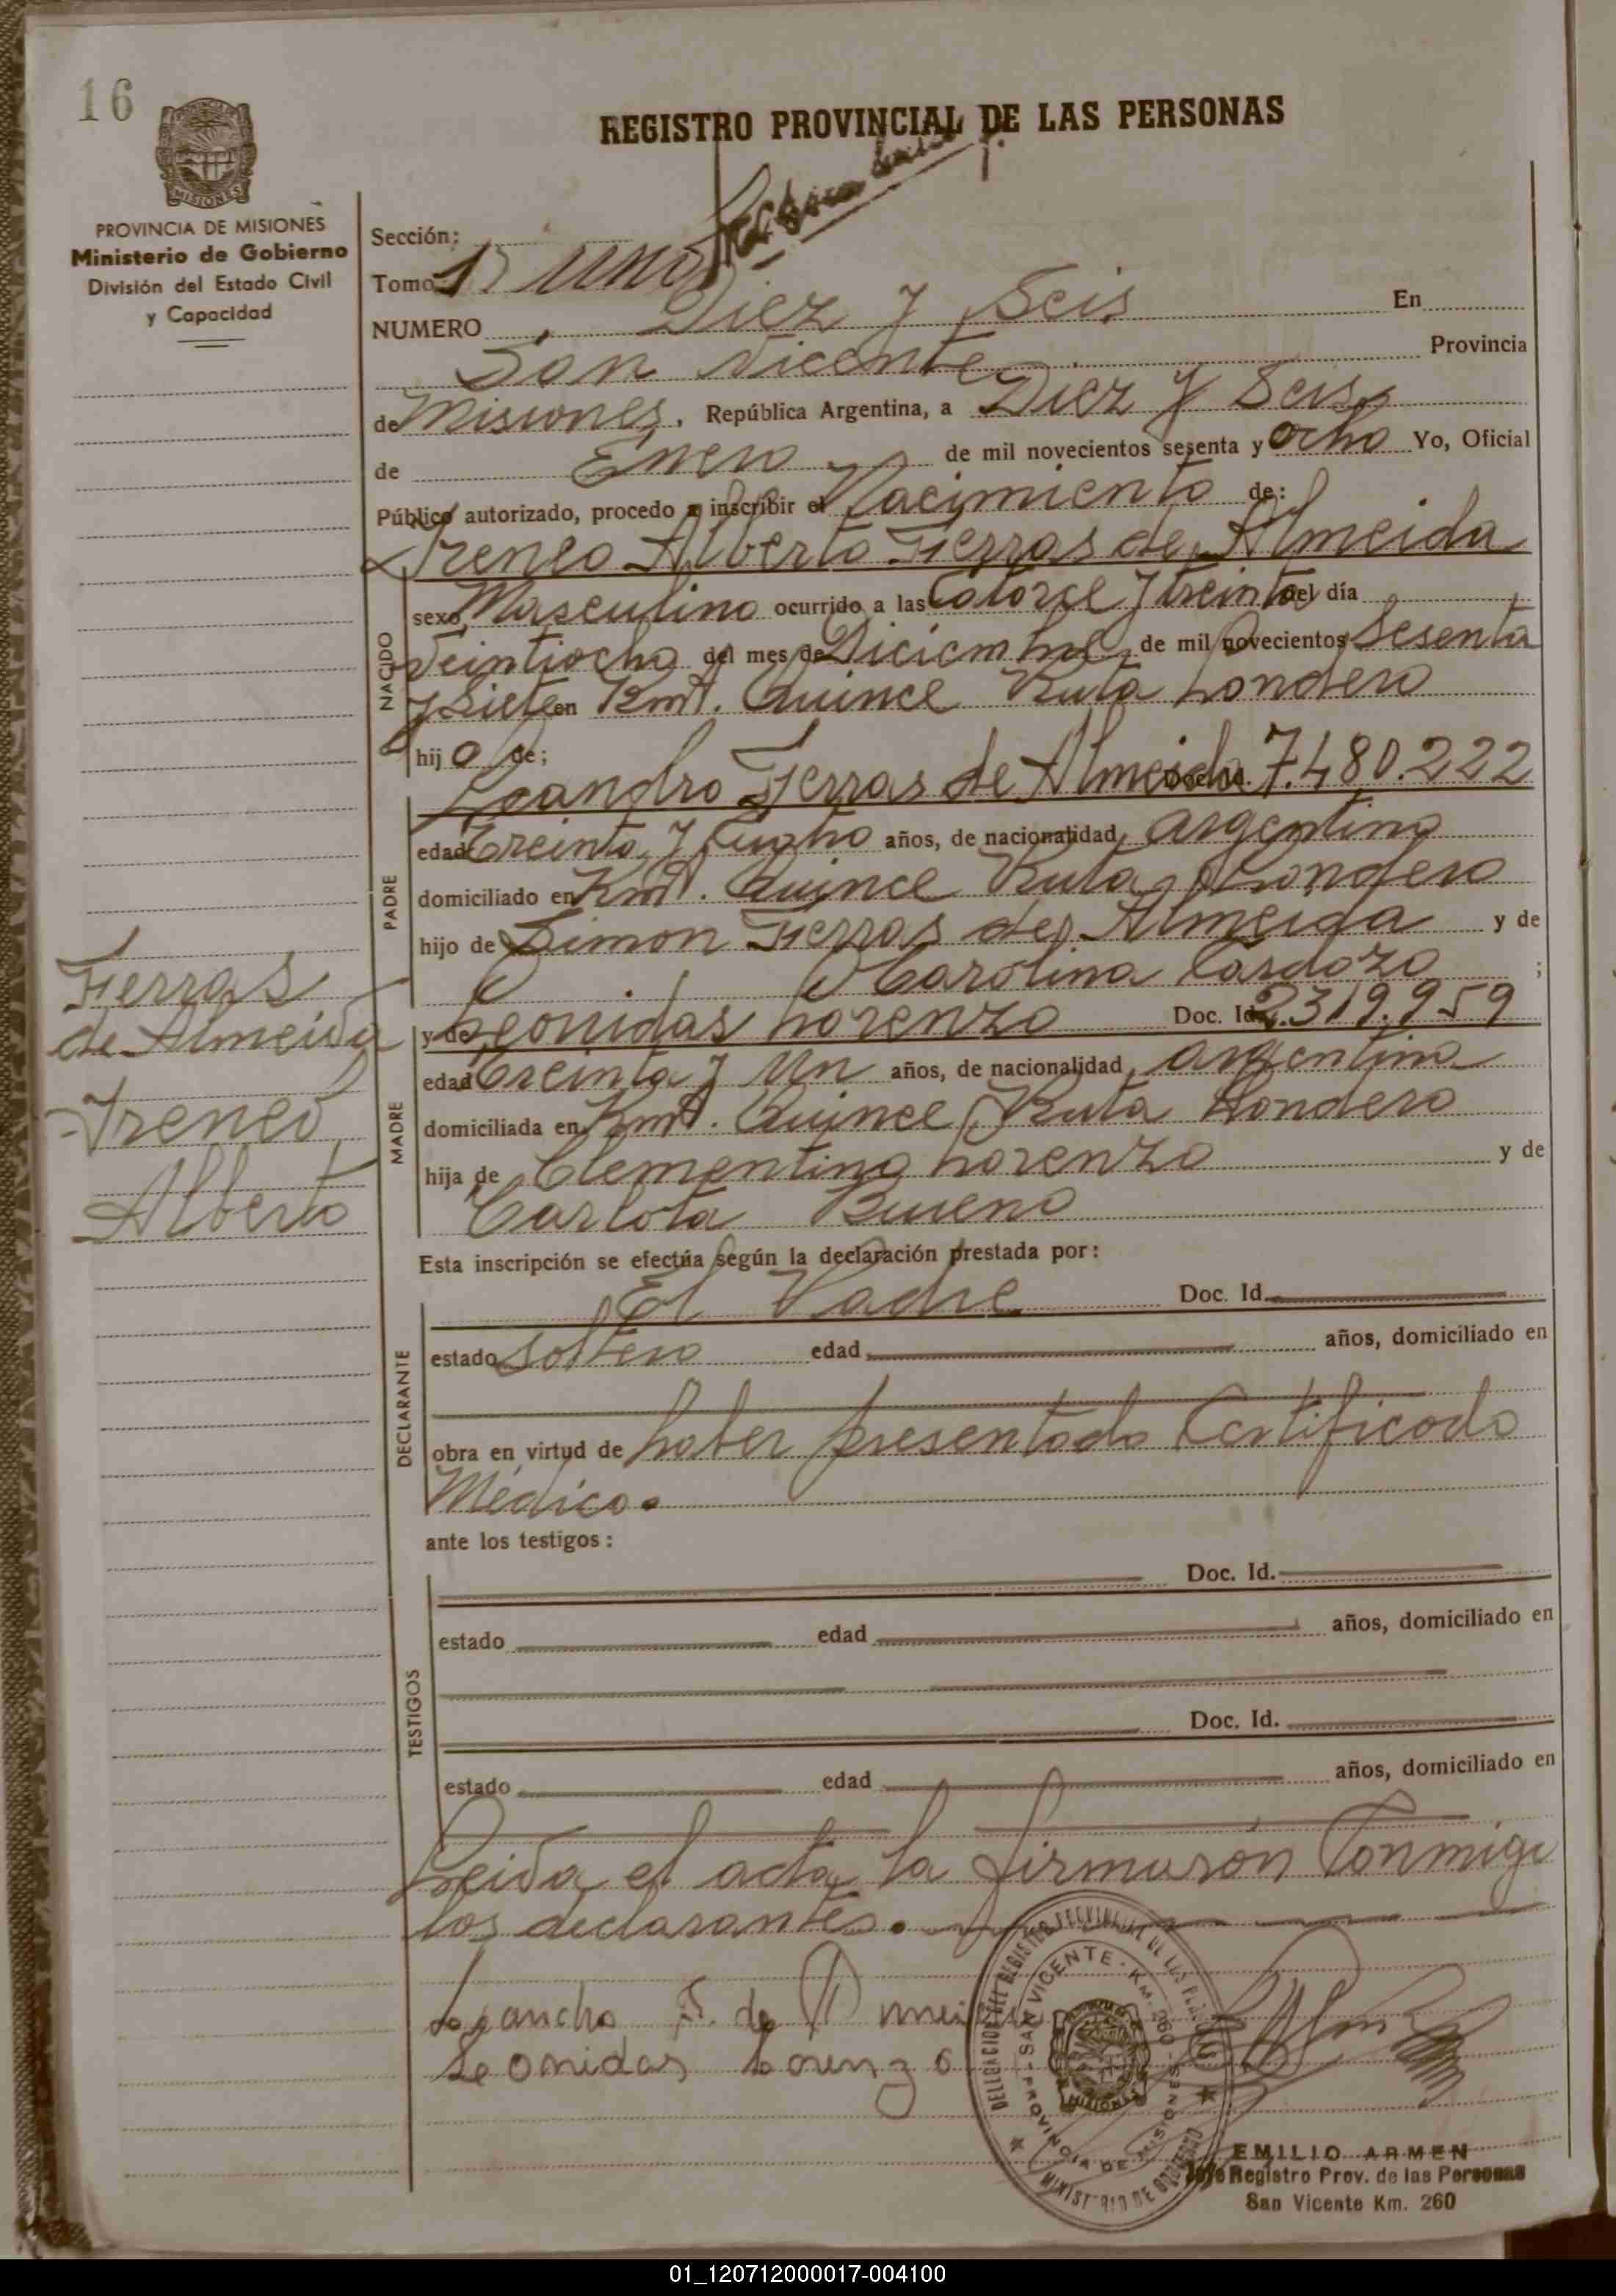 16
REGISTRO PROVINCIAL DE LAS PERSONAS
PROVINCIA DE MISIONES
Ministerio de Gobierno
División del Estado Civil
y Capacidad
Sección:
Tomo 1) uno
NUMERO Diez y Seis En
San Vicente Provincia
de Misiones, República Argentina, a Diez y Seis
de Enero de mil novecientos sesenta y ocho Yo, Oficial
Público autorizado, procedo a inscribir el Nacimiento de:
Ireneo Alberto Fierras de Almeida
NACIDO
sexo Masculino ocurrido a las Catorce y treinta del día
Veintiocho del mes de Diciembre de mil novecientos Sesenta
y Siete en Kmt. Quince Ruta Londero
hijo de;
Leandro Fierras de Almeida Doc. Id. 7.480.222
PADRE
edad Treinta y años, de nacionalidad argentino
domiciliado en Kmt. Quince Ruta Londero
hijo de Simon Fierras de Almeida y de
Carolina Cardozo ;
MADRE
y de Leonidas Lorenzo Doc. Id. 2.319.959
edad Treinta y Un años, de nacionalidad argentina
domiciliada en Kmt. Quince Ruta Londero
hija de Clementino Lorenzo y de
Carlota Bueno
Fierras
de Almeida
Ireneo
Alberto
Esta inscripción se efectúa según la declaración prestada por:
DECLARANTE
El Padre Doc. Id.
estado soltero edad años, domiciliado en
obra en virtud de haber presentado Certificado
Médico.
ante los testigos:
TESTIGOS
Doc. Id.
estado edad años, domiciliado en
Doc. Id.
estado edad años, domiciliado en
Leida el acta, la firmaron Conmigo
los declarantes.
Leandro F. de Almeida
Leonidas Lorenzo
DELEGACION DEL REGISTRO PROVINCIAL DE LAS PERSONAS
SAN VICENTE - KM. 260 - PROVINCIA DE MISIONES
MISIONES
MINISTERIO DE GOBIERNO
EMILIO ARMEN
Jefe Registro Prov. de las Personas
San Vicente Km. 260
01_120712000017-004100